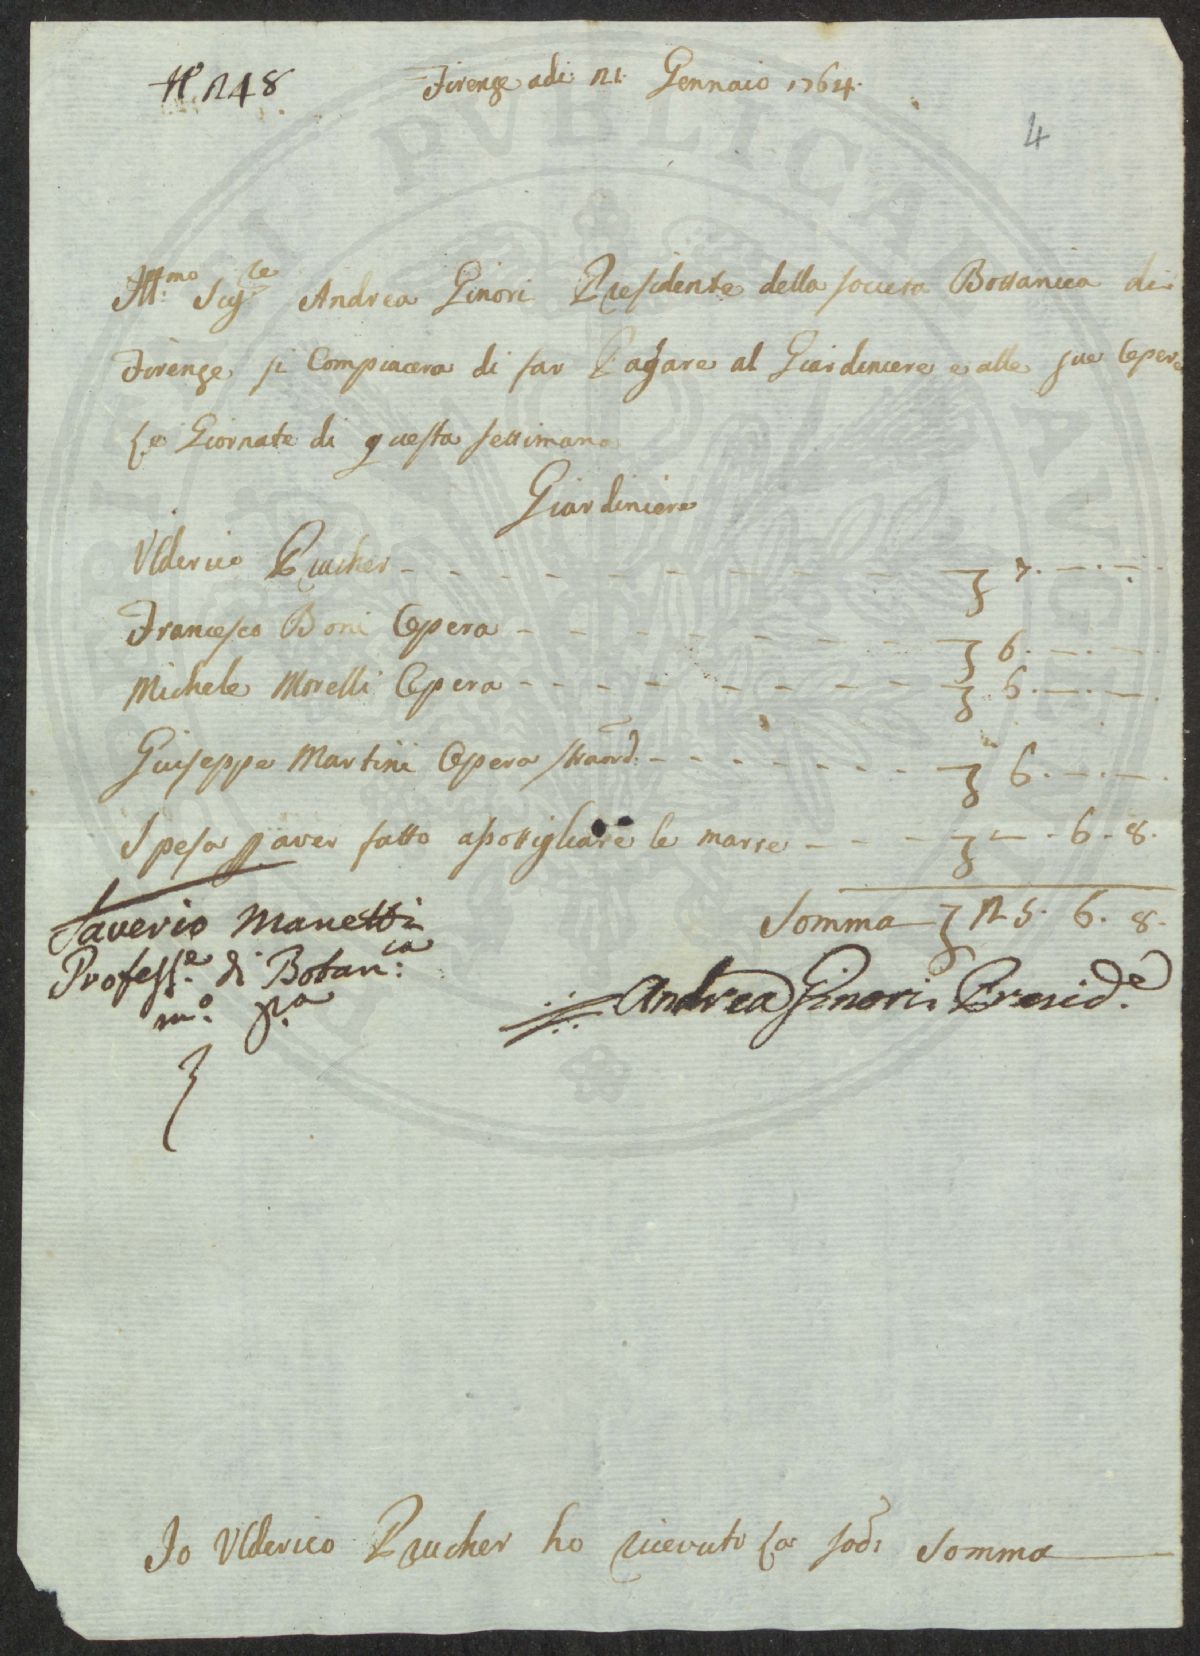 N.º 248
Firenze adi: 21. Gennaio 1764.
4
Ill.mo Sig.re Andrea Ginori Presidente della società Bottanica di
Firenze si Compiacera di far Pagare al Giardiniere e alle sue Opere
Le Giornate di questa settimana
Giardiniere
Ulderico Prucher - - - - - - - - - £ 7. —. —.
Francesco Boni Opera - - - - - - - - £ 6. —. —.
Michele Morelli Opera - - - - - - - - £ 6. —. —.
Giuseppe Martini Opera straord. - - - - - - - £ 6. —. —.
Spesa p aver fatto assottigliare le marre - - - - £ —. 6. 8.
Somma £ 25. 6. 8.
Saverio Manetti
Profess.e di Botan.ca
m.o p.a
Andrea Ginori Presid.e
Io Ulderico Prucher ho ricevuto La sod. Somma